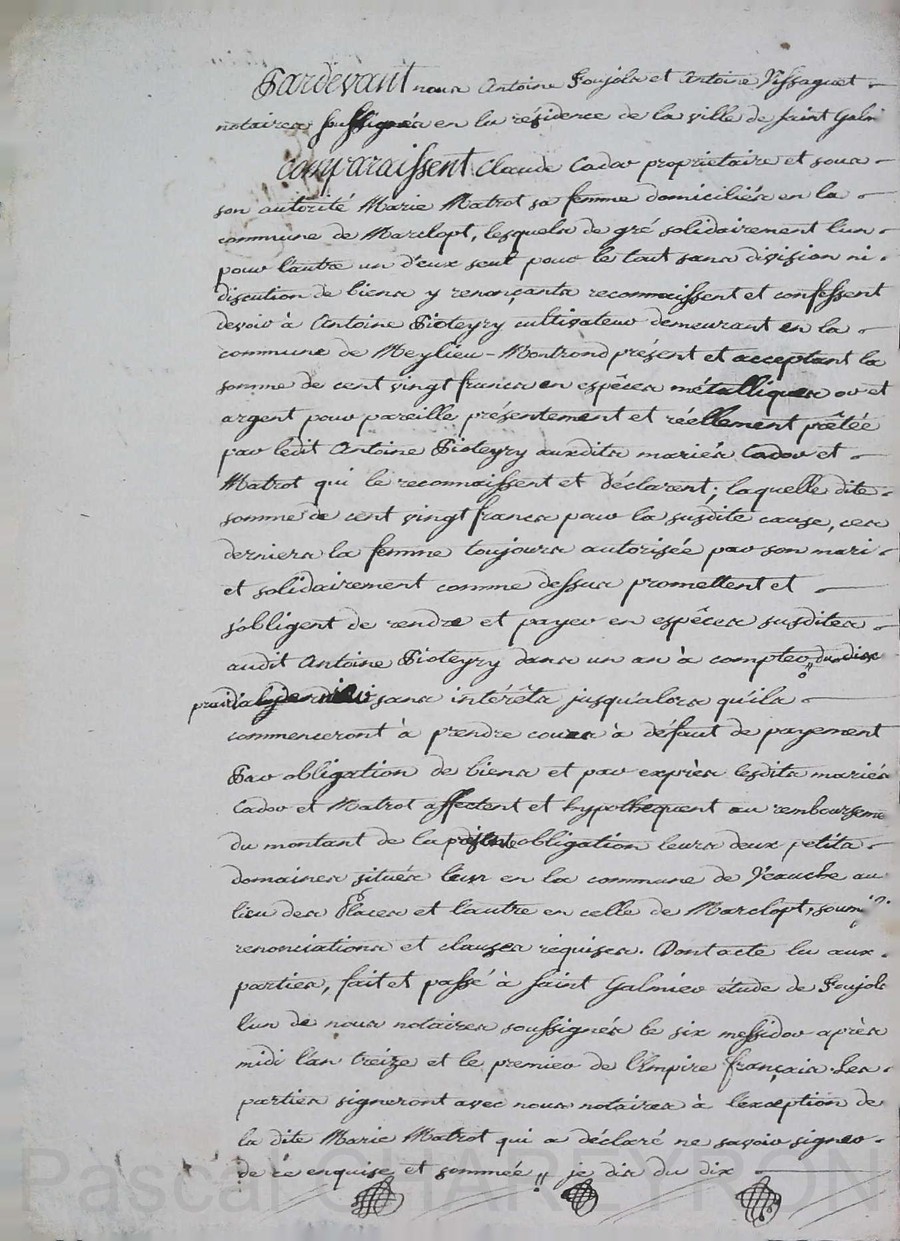 Pardevant nous Antoine Poujols et Antoine Vissaguet
notaires soussignés en la résidence de la ville de Saint Galm
Comparaissent Claude Cador propriétaire et sous
son autorité Marie Matrot sa femme domiciliés en la
commune de Marclopt, lesquels de gré solidairement l'un
pour l'autre un d'eux seul pour le tout sans division ni
discution de biens y renonçants reconnaissent et confessent
devoir à Antoine Pioteyry cultivateur demeurant en la
commune de Meylieu-Montrond présent et acceptant la
somme de cent vingt francs en espêces métalliques or et
argent pour pareille présentement et réellement prêtée
par ledit Antoine Pioteyry auxdits mariés Cador et
Matrot qui le reconnaissent et déclarent; laquelle dite
somme de cent vingt francs pour la susdite cause, ces
derniers la femme toujours autorisée par son mari
et solidairement comme dessus promettent et
s'obligent de rendre et payer en espêces susdites
audit Antoine Pioteyry dans un an à compter du dix
sans intérêts jusqu'alors qu'ils
commenceront à prendre cours à défaut de payement
Par obligation de biens et par exprès lesdits mariés
Cador et Matrot affectent et hypothéquent au rembourseme
du montant de la présente obligation leurs deux petits
domaines situés l'un en la commune de Veauche au
lieu des Places et l'autre en celle de Marclopt, soum
renonciations et clauses requises. Dont acte lu aux
parties, fait et passé à Saint Galmier étude de Poujols
l'un de nous notaires soussignés le six messidor après
midi l'an treize et le premier de l'Empire français. Les
parties signeront avec nous notaires à l'exception de
la dite Marie Matrot qui a déclaré ne savoir signer
de ce enquise et sommée // je dis du dix
Pascal CHAREYRON